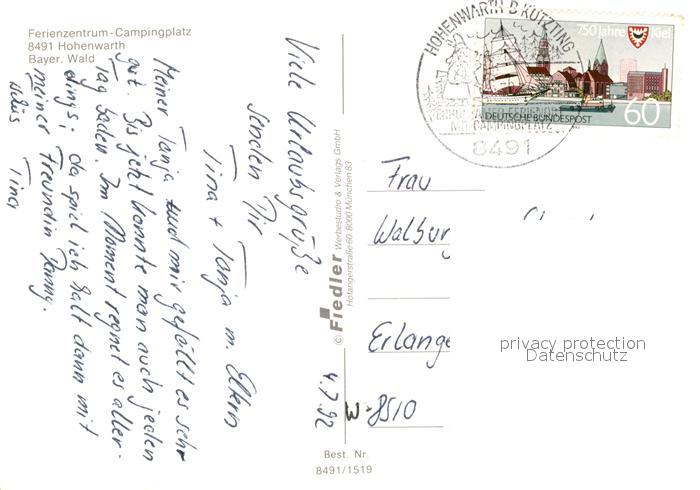 Ferienzentrum-Campingplatz
8491 Hohenwarth
Bayer. Wald
Viele Urlaubsgrüße
senden Dir
Tina + Tanja m. Eltern
4.7.92
Meiner Tanja und mir gefällt es sehr
gut. Bis jetzt konnte man auch jeden
Tag baden. Im Moment regnet es aller-
dings; da spiel ich halt dann mit
meiner Freundin
Tina
© Fiedler Werbestudio & Verlags GmbH
Hofangerstraße 60 8000 München 83
Best. Nr.
8491/1519
HOHENWARTH B KÖTZTING
MIT CAMPINGPLATZ
8491
750 Jahre Kiel
DEUTSCHE BUNDESPOST
60
Frau
Walburg
Erlange
W-8510
privacy protection
Datenschutz